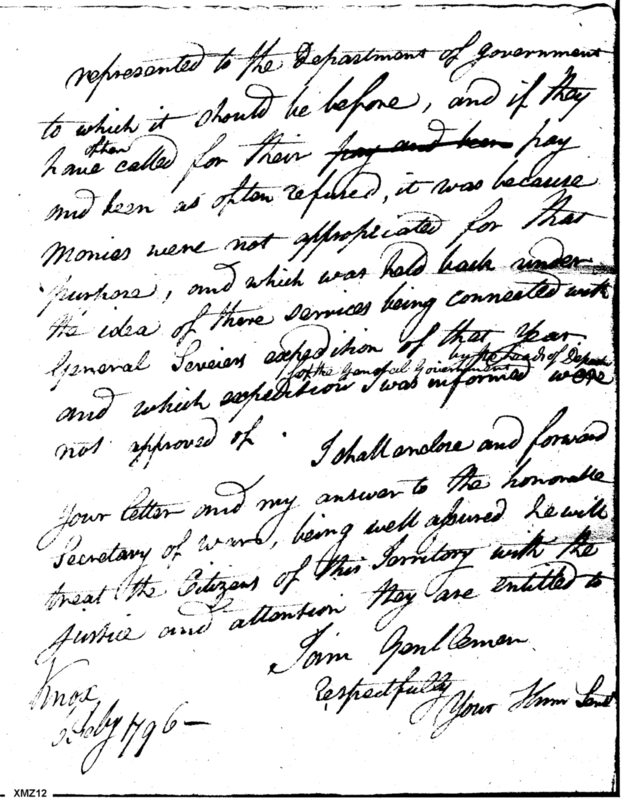 represented to the Department of Government
to which it should be before, and if they
have often called for their pay and been pay
and been as often refused, it was because
monies were not appropriated for that
purpose, and which was held back under
the idea of there services being connected with
General Seveiers expedition of that Year
by the heads of Depart
of the General Government
and which expedition I was informed were
not approved of. I shall enclose and forward
Your letter and my answer to the honorable
Secretary of War, being well assured he will
treat the Citizens of this Territory with the
Justice and attention they are entitled to
I am Gentlemen
respectfully
Your Hum Servt
Knox
Feby 1796 —
XMZ12